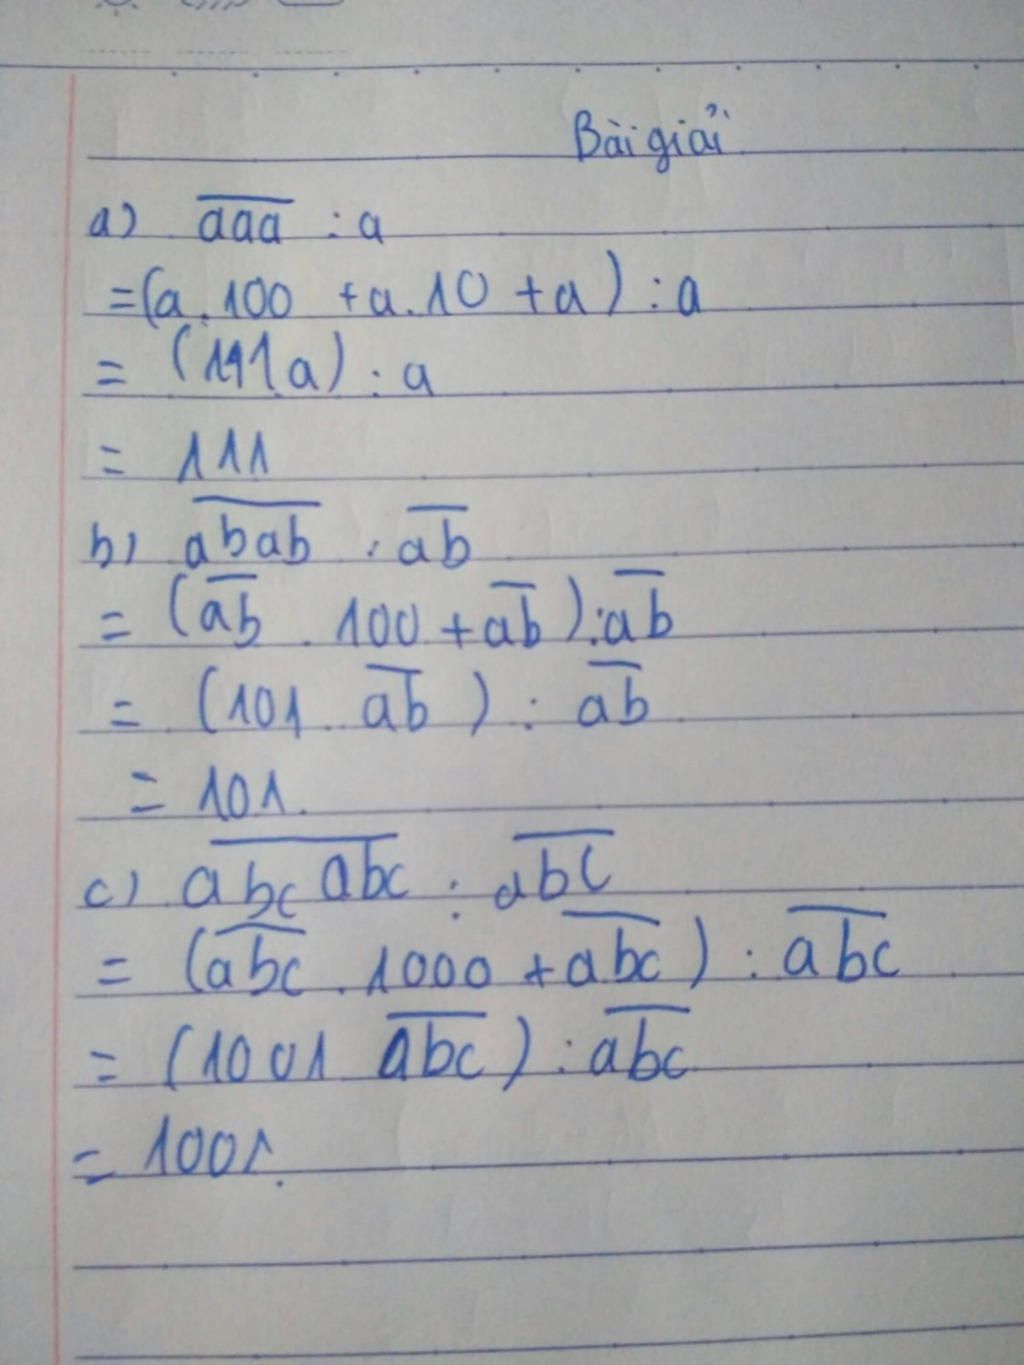 Bài giải
a) a̅a̅a̅ : a
= (a . 100 + a . 10 + a) : a
= (111a) : a
= 111
b) a̅b̅a̅b̅ : a̅b̅
= (a̅b̅ . 100 + a̅b̅) : a̅b̅
= (101 a̅b̅) : a̅b̅
= 101.
c) a̅b̅c̅a̅b̅c̅ : a̅b̅c̅
= (a̅b̅c̅ . 1000 + a̅b̅c̅) : a̅b̅c̅
= (1001 a̅b̅c̅) : a̅b̅c̅
= 1001.